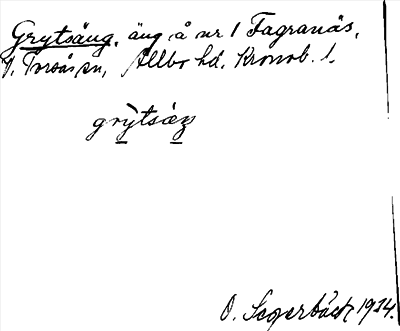 Grytsäng, äng å nr 1 Fagranäs,
V. Torsås sn, Allbo hd. Kronob. l.
grỳtsäŋ
O. Sagerbäck 1914.